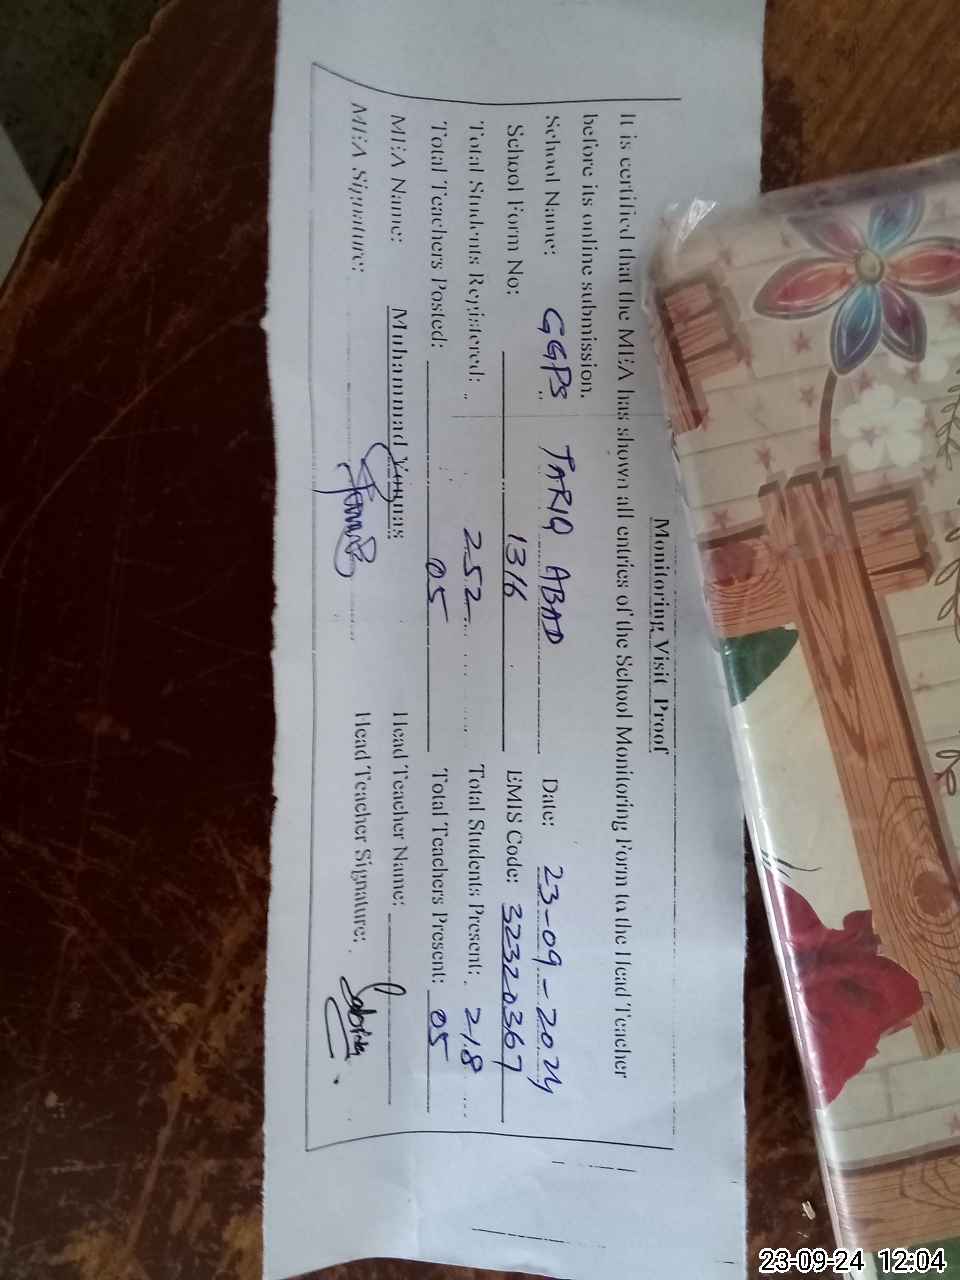 Monitoring Visit Proof
It is certified that the MEA has shown all entries of the School Monitoring Form to the Head Teacher
before its online submission.
School Name: GGPS TARIQ ABAD Date: 23-09-2024
School Form No: 1316 EMIS Code: 32320367
Total Students Registered: 252 Total Students Present: 218
Total Teachers Posted: 05 Total Teachers Present: 05
MEA Name: Muhammad Head Teacher Name:
MEA Signature: Head Teacher Signature:
23-09-24 12:04